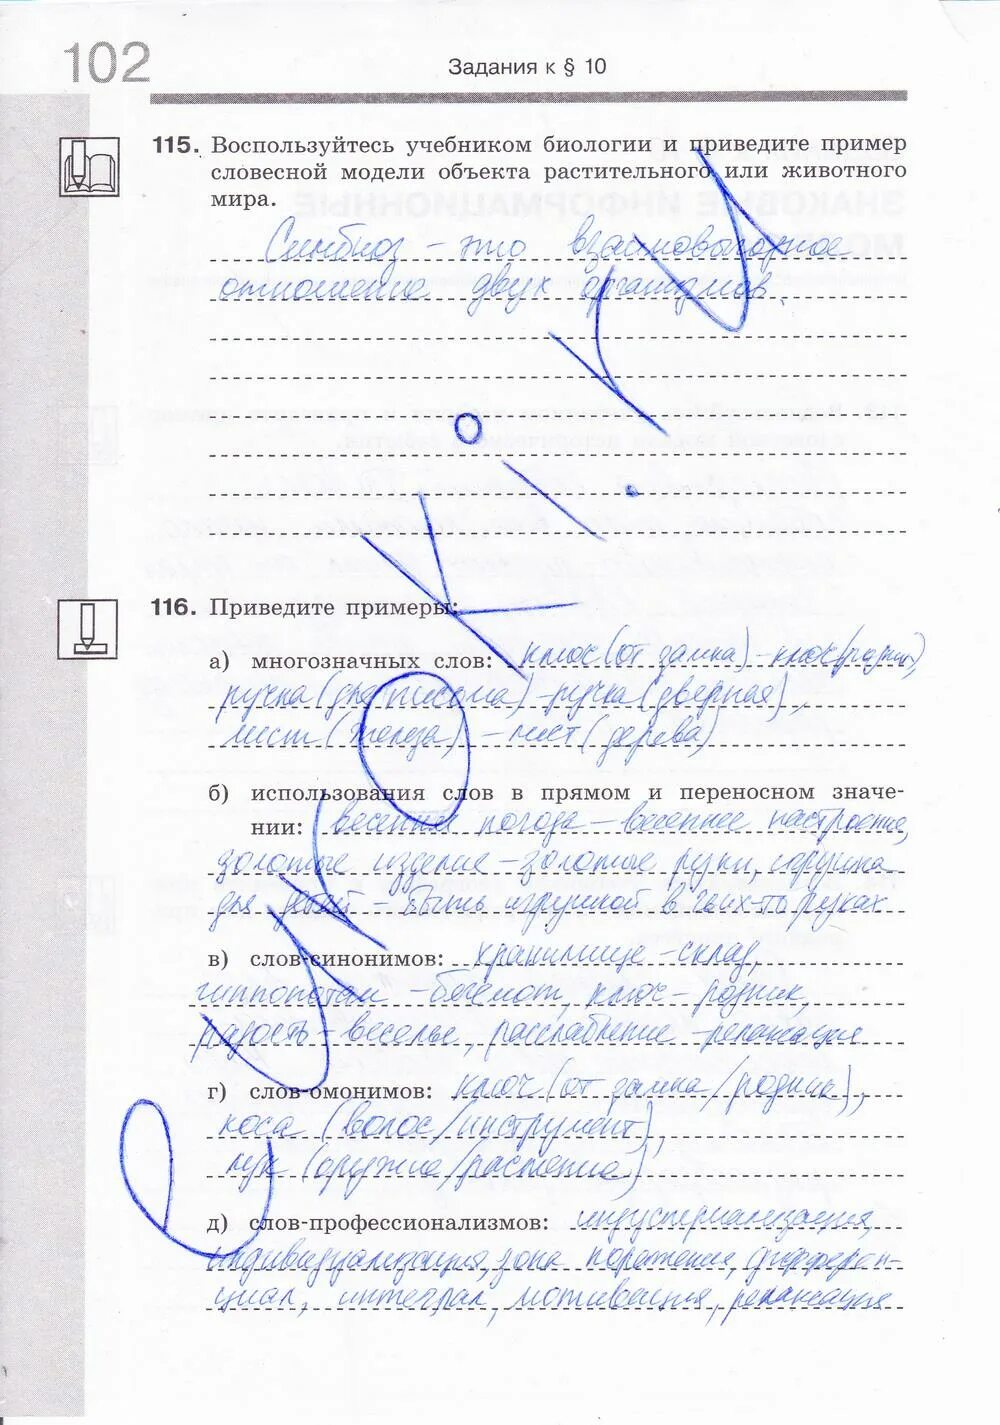 102
Задания к § 10
115. Воспользуйтесь учебником биологии и приведите пример
словесной модели объекта растительного или животного
мира.
Симбиоз – это взаимовыгодное
отношение двух организмов.
116. Приведите примеры:
а) многозначных слов: ключ (от замка) – ключ (родник),
ручка (для письма) – ручка (дверная),
лист (железа) – лист (дерева)
б) использования слов в прямом и переносном значе-
нии: весенняя погода – весеннее настроение,
золотые изделие – золотые руки, игрушка
для детей – быть игрушкой в чьих-то руках
в) слов-синонимов: хранилище – склад,
гиппопотам – бегемот, ключ – родник,
радость – веселье, расслабление – релаксация
г) слов-омонимов: ключ (от замка/родник),
коса (волос/инструмент),
лук (оружие/растение)
д) слов-профессионализмов: индустриализация,
индивидуализация, зона поражения, дифферен-
циал, интеграл, мотивация, релаксация
eurokI.ru